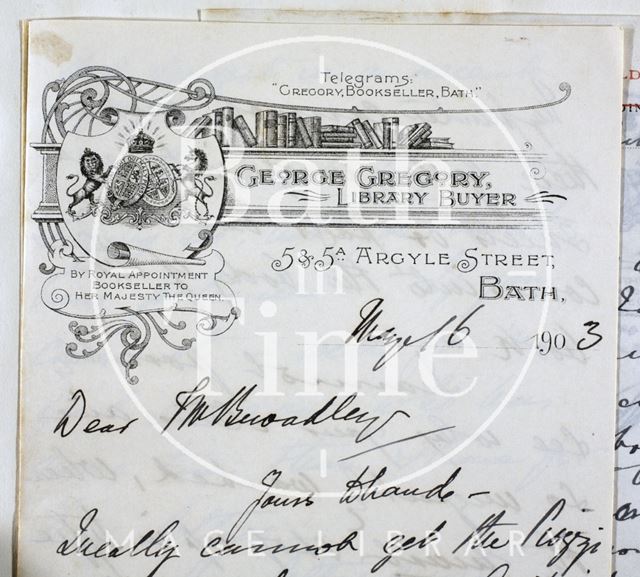 Telegrams:
"Gregory, Bookseller, Bath."
George Gregory,
Library Buyer
5 & 5A Argyle Street,
Bath,
By Royal Appointment
Bookseller to
Her Majesty The Queen.
May 16 1903
Dear Mr Broadley
Yours to hand –
I really cannot get the Piozzi
Bath
in
Time
IMAGE LIBRARY